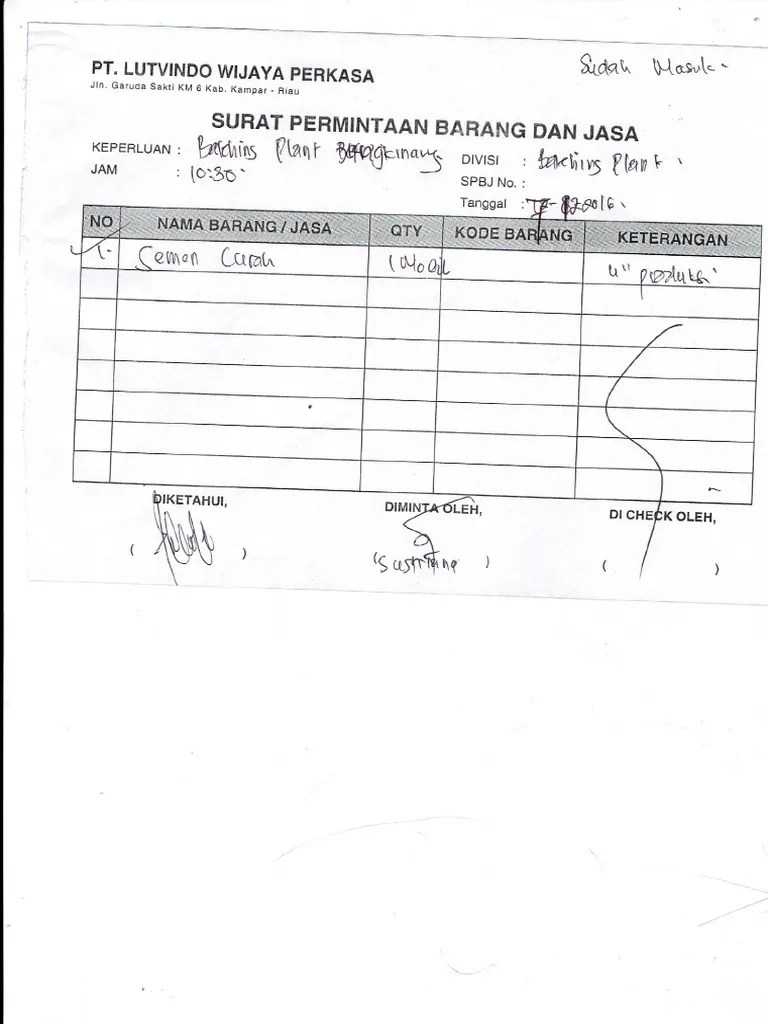 Sudah Masuk.
PT. LUTVINDO WIJAYA PERKASA
Jln. Garuda Sakti KM 6 Kab. Kampar - Riau
SURAT PERMINTAAN BARANG DAN JASA
KEPERLUAN : Batching Plant
DIVISI : Batching Plant.
JAM : 10:30.
SPBJ No. :
Tanggal :
NO NAMA BARANG / JASA QTY KODE BARANG KETERANGAN
1. Semen Curah 1 Mobil u" produksi
DIKETAHUI, DIMINTA OLEH, DI CHECK OLEH,
( ) ( ) ( )